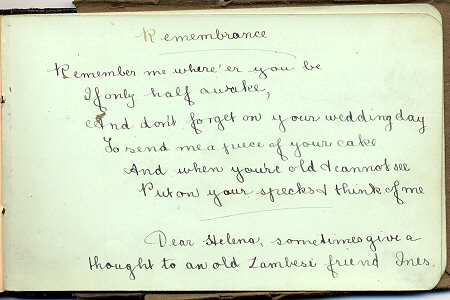 Remembrance
Remember me where'er you be
If only half awake,
And don't forget on your wedding day
To send me a piece of your cake
And when you're old & cannot see
Put on your specks & think of me
Dear Helena, sometimes give a
thought to an old Zambesi friend Ines.